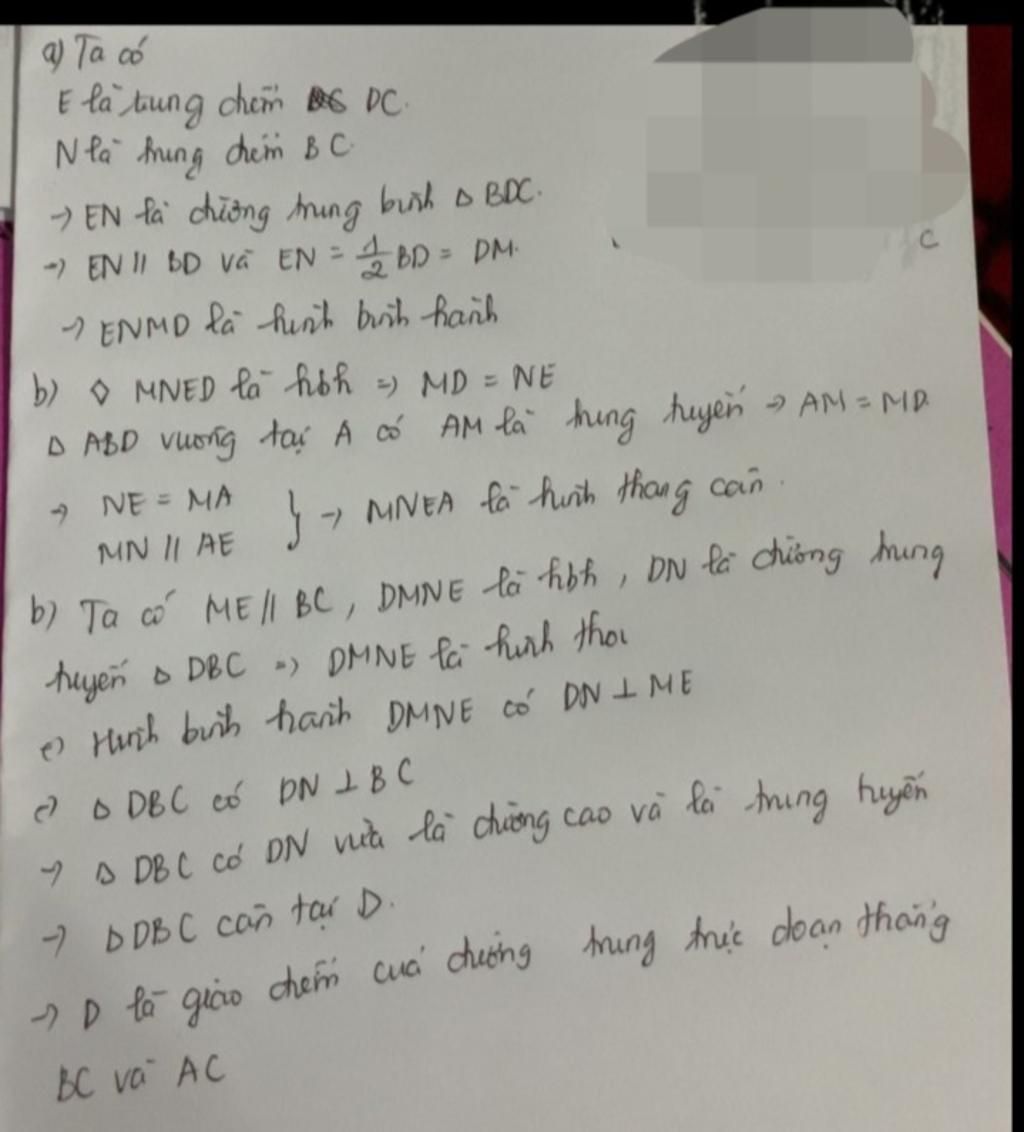 a) Ta có
E là trung điểm DC.
N là trung điểm BC.
→ EN là đường trung bình Δ BDC.
→ EN // BD và EN = 1/2 BD = DM.
→ ENMD là hình bình hành
b) ◇ MNED là hbh => MD = NE
Δ ABD vuông tại A có AM là trung tuyến → AM = MD.
→ NE = MA
MN // AE } → MNEA là hình thang cân.
b) Ta có ME // BC, DMNE là hbh, DN là đường trung
tuyến Δ DBC => DMNE là hình thoi
c) Hình bình hành DMNE có DN ⊥ ME
c) Δ DBC có DN ⊥ BC
→ Δ DBC có DN vừa là đường cao và là trung tuyến
→ Δ DBC cân tại D.
→ D là giao điểm của đường trung trực đoạn thẳng
BC và AC
C